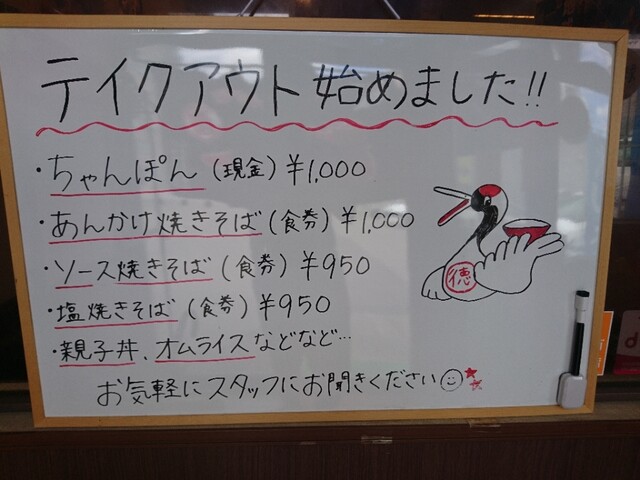 テイクアウト始めました!!
・ちゃんぽん(現金)¥1,000
・あんかけ焼きそば(食券)¥1,000
・ソース焼きそば(食券)¥950
・塩焼きそば(食券)¥950
・親子丼、オムライスなどなど…
お気軽にスタッフにお聞きください
徳